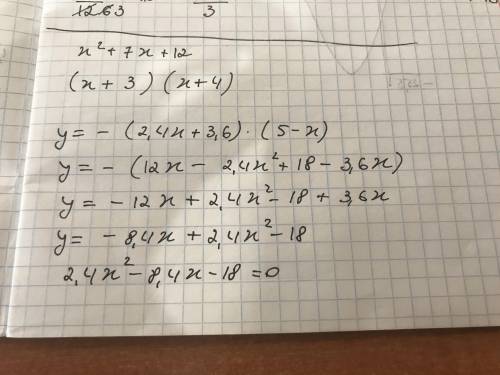 1263
3
x² + 7x + 12
(x + 3) (x + 4)
y = - (2,4x + 3,6) · (5 - x)
y = - (12x - 2,4x² + 18 - 3,6x)
y = - 12x + 2,4x² - 18 + 3,6x
y = - 8,4x + 2,4x² - 18
2,4x² - 8,4x - 18 = 0